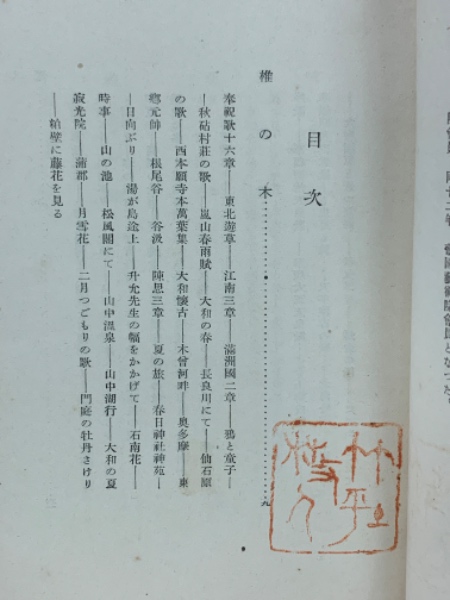 目次
椎の木……九
奉祝歌十六章――東北遊草――江南三章――滿洲國二章――鴉と童子―
―秋砧村莊の歌――嵐山春雨賦――大和の春――長良川にて――仙石原
の歌――西本願寺本萬葉集――大和懷古――木曾河畔――奥多摩――東
鄕元帥――根尾谷――谷汲――陣思三章――夏の旅――春日神社神苑―
―日向ぶり――湯が島途上――升允先生の幅をかかげて――石南花――
時事――山の池――松風閣にて――山中溫泉――山中湖行――大和の夏
寂光院――蒲郡――月雪花――二月つごもりの歌――門庭の牡丹さけり
――粕壁に藤花を見る